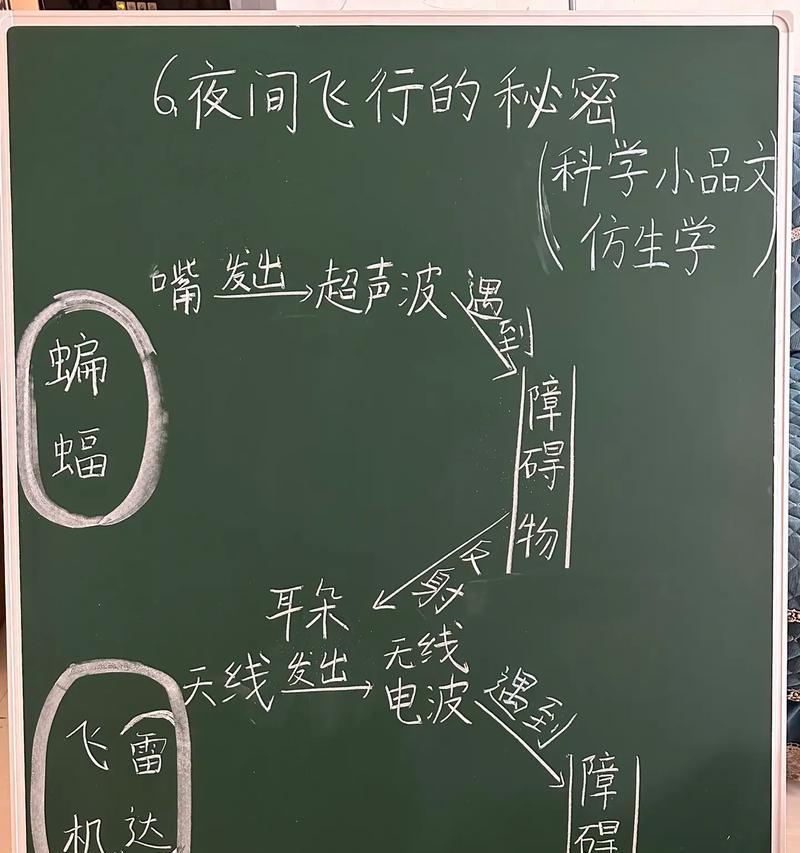 6.夜间飞行的秘密
(科学小品文
仿生学)
嘴 发出 超声波 遇到
蝙蝠
障碍物
反射
耳朵
天线 发出 无线电波 遇到
飞机
雷达
障碍